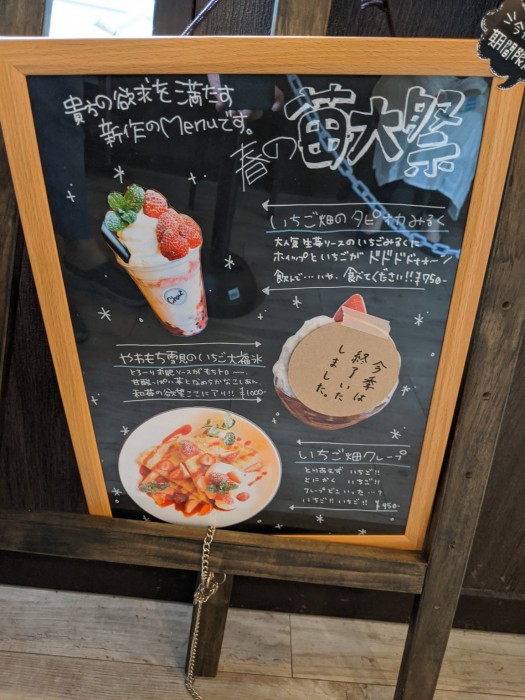 貴方の欲求を満たす
新作のMenuです。
春の苺大祭
いちご畑のタピオカみるく
大人気生苺ソースのいちごみるくに
ホイップといちごが ドドドドォォーン
飲んで…いや、食べてください!! ¥750-
やわもち雪見のいちご大福氷
とろーり求肥ソースがもちトロー…
甘酸っぱい苺となめらかなこしあん。
和苺の欲望ここにアリ!! ¥1000-
今季は
終了いた
しました。
いちご畑クレープ
とりあえず いちご!!
とにかく いちご!!
クレープどこいった…?
いちご!! いちご!! ¥950-
期間限